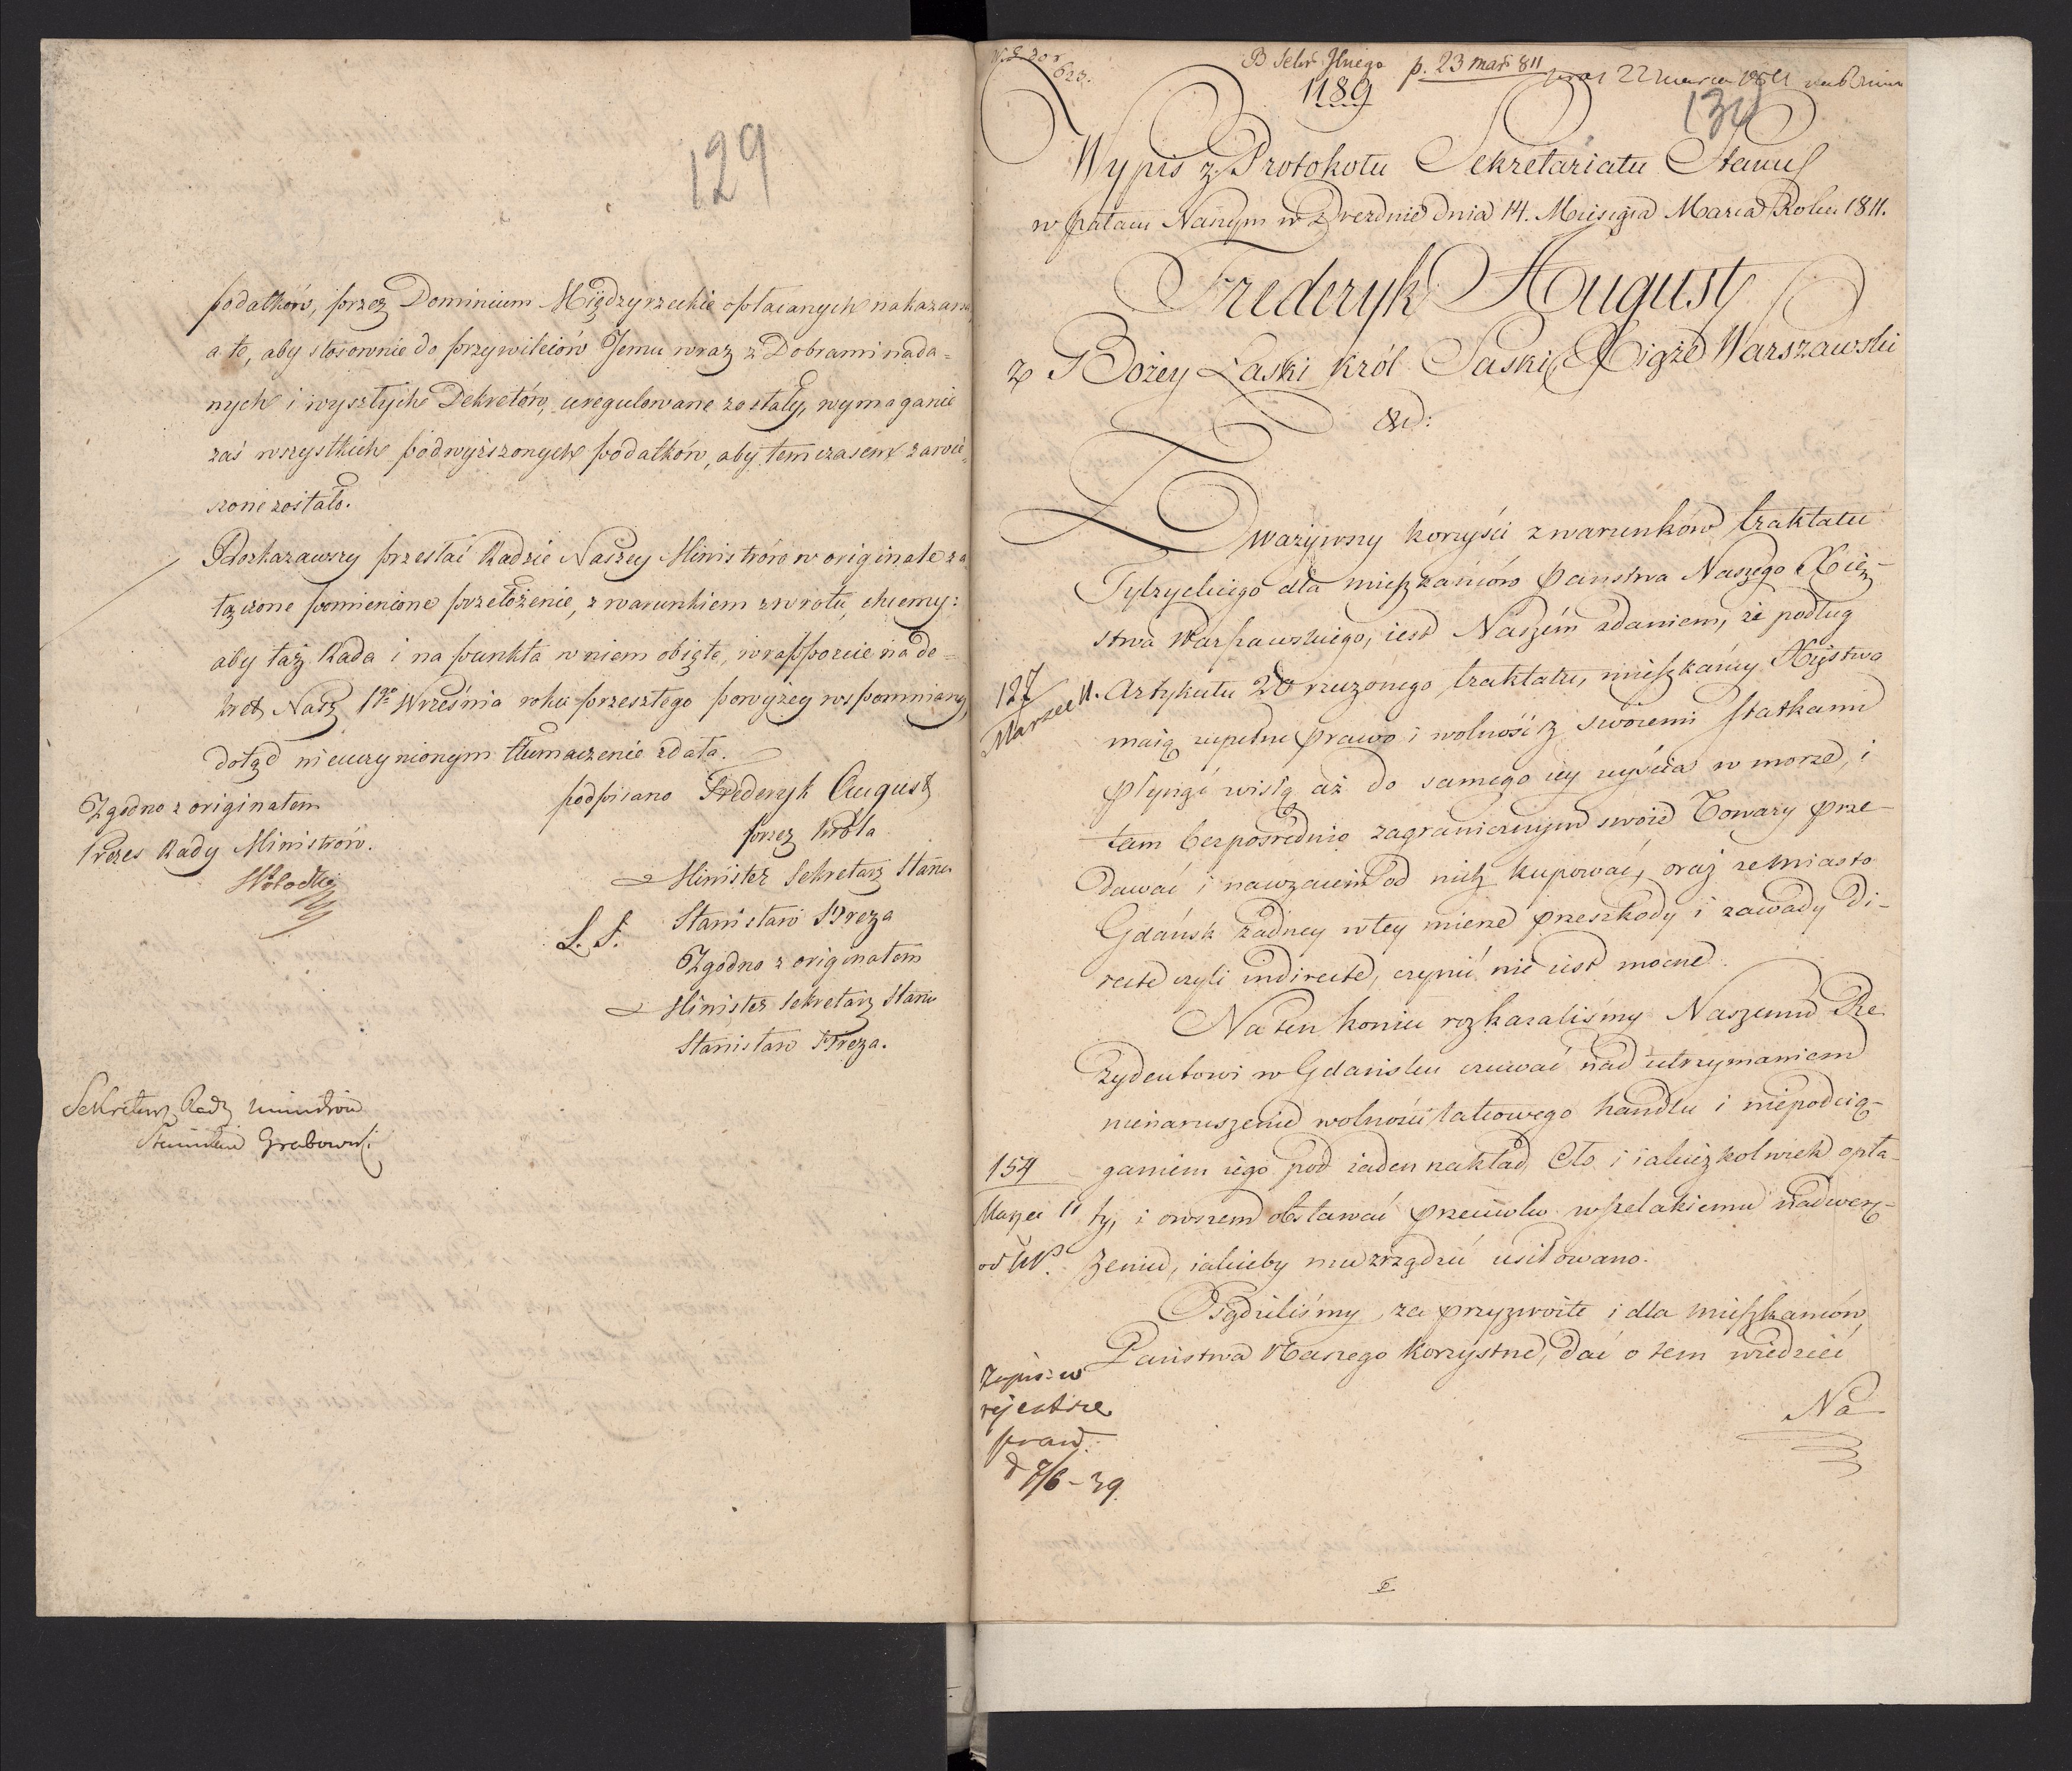 129
podatków, przez Dominium Międzyrzeckie opłacanych nakazana,
a to, aby stosownie do przywileiów Jemu wraz z Dobrami nada=
nych i wyszłych Dekretów, uregulowane zostały, wymaganie
zaś wszystkich podwyższonych podatków, aby tem czasem zawie=
szone zostało.
Rozkazawszy przesłać Radzie Naszey Ministrów w originale za
łączone pomienione przełożenie, z warunkiem zwrotu, chcemy:
aby taż Rada i na punkta w niem obięte, i w rapporcie na de=
kret Nasz 1go Września roku przeszłego powyżey wspomniany,
dotąd nieuczynionym tłumaczenie zdała.
podpisano Frederyk August
przez Króla
Minister Sekretarz Stanu
L. S. Stanisław Breza
Zgodno z originałem
Minister Sekretarz Stanu
Stanisław Breza.
Zgodno z originałem
Prezes Rady Ministrów.
Sekretarz Rady Ministrów
Stanisław Grabowski
623.
p. 23 mar 811
22 marca 1811
1189
130
Wypis z Protokołu Sekretariatu Stanu
w pałacu Naszym w Dreznie dnia 14. Miesiąca Marca Roku 1811.
Frederyk August
z Bożey Łaski Król Saski, Xiąże Warszawski
&c:
Zważywszy korzyści z warunków traktatu
Tylżyckiego dla mieszkańców Państwa Naszego Xięz-
stwa Warszawskiego, iest Naszém zdaniem, że podług
Artykułu 20 rzeczonego traktatu, mieszkańcy Xięstwa
maią zupełne prawo i wolność z swoiemi statkami
płynąć wisłą aż do samego iey uyścia w morze, i
tam bezpośrednio zagranicznym swoie Towary prze-
dawać i nawzaiem od nich kupować, oraz że Miasto
Gdańsk żadney w tey mierze przeszkody i zawady di-
recte czyli indirecte, czynić nie iest mocne.
Na ten koniec rozkazaliśmy Naszemu Re
zydentowi w Gdańsku czuwać nad utrzymaniem
nienaruszenie wolności takowego handlu i niepodcią-
ganiem iego pod żaden nakład, Cło i iakieżkolwiek opła-
ty, i owszem obstawać przeciwko wszelakiemu nadwerę-
żeniu, iakieby mu zrządzić usiłowano.
Osądziliśmy za przyzwoite i dla mieszkańców
Państwa Naszego korzystne, dać o tem wiedzieć
Na
127
Marzec 11.
154
Marzec 11
Zapis: w
rejestrze
praw.
d 7/6 - 39.